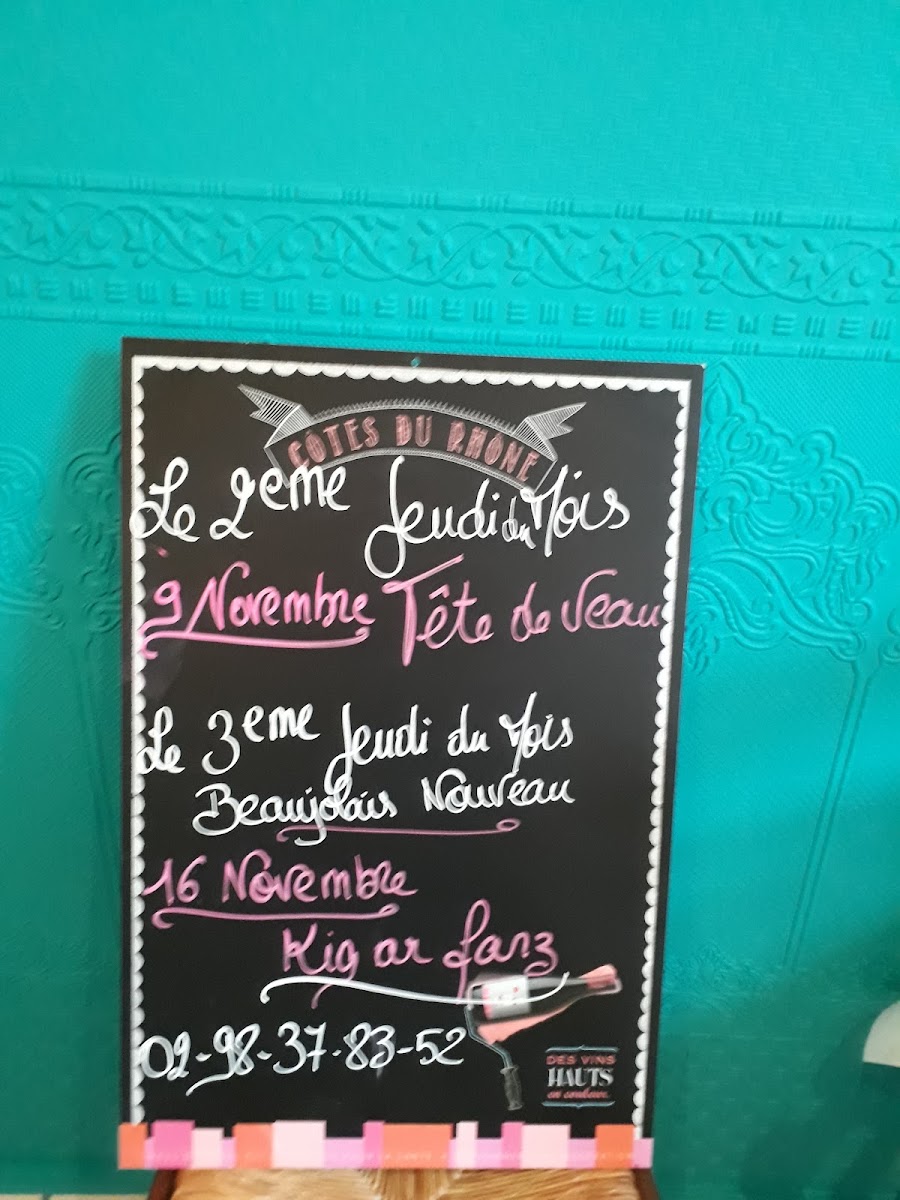 CÔTES DU RHÔNE
Le 2eme Jeudi du Mois
9 Novembre Tête de Veau
Le 3eme Jeudi du Mois
Beaujolais Nouveau
16 Novembre
Kig ar farz
02-98-37-83-52
DES VINS
HAUTS
en couleurs.